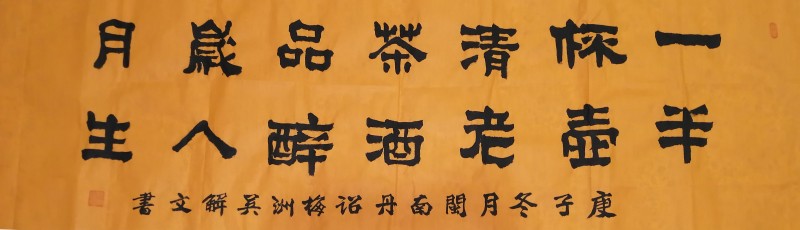 一杯清茶品歲月
半壺老酒醉人生
庚子冬月閩南丹诏梅洲吴解文書